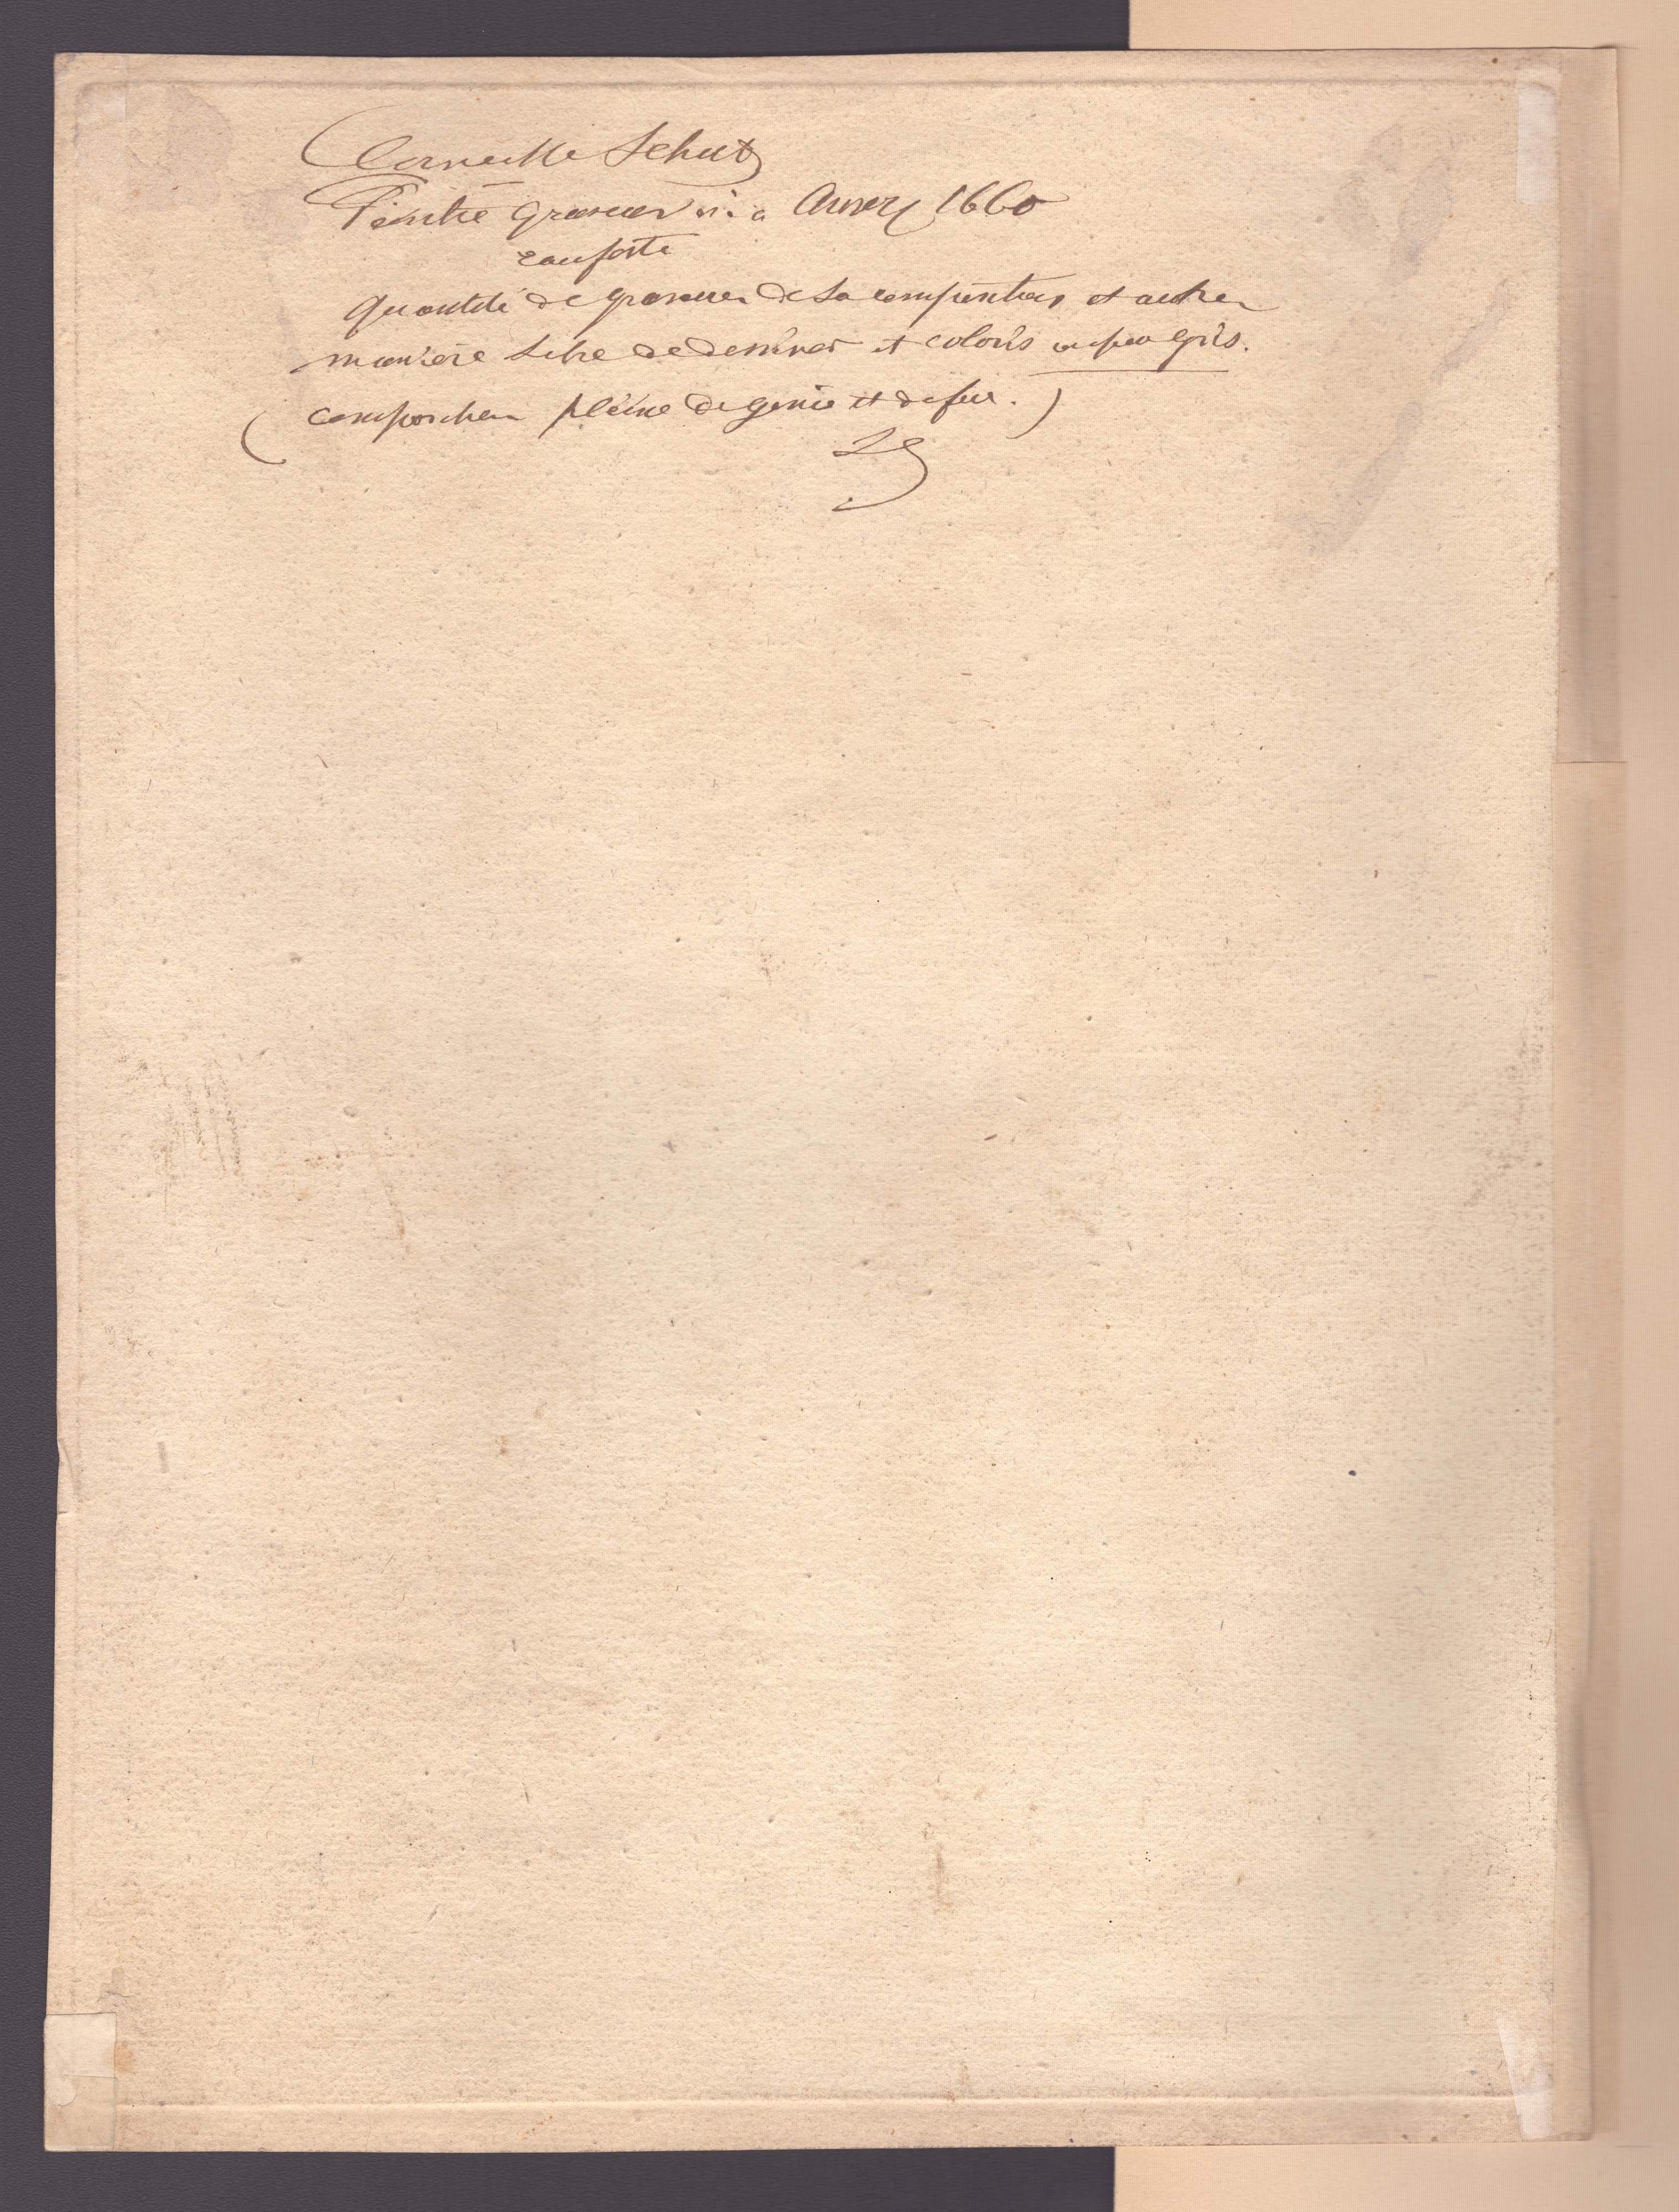 Corneille Schut
Peintre graveur né a Anvers 1660
eauforte
quantité de gravures de sa composition et autres
manière libre de dessiner et coloris un peu gris.
(composition pleine de genie et de feu.)